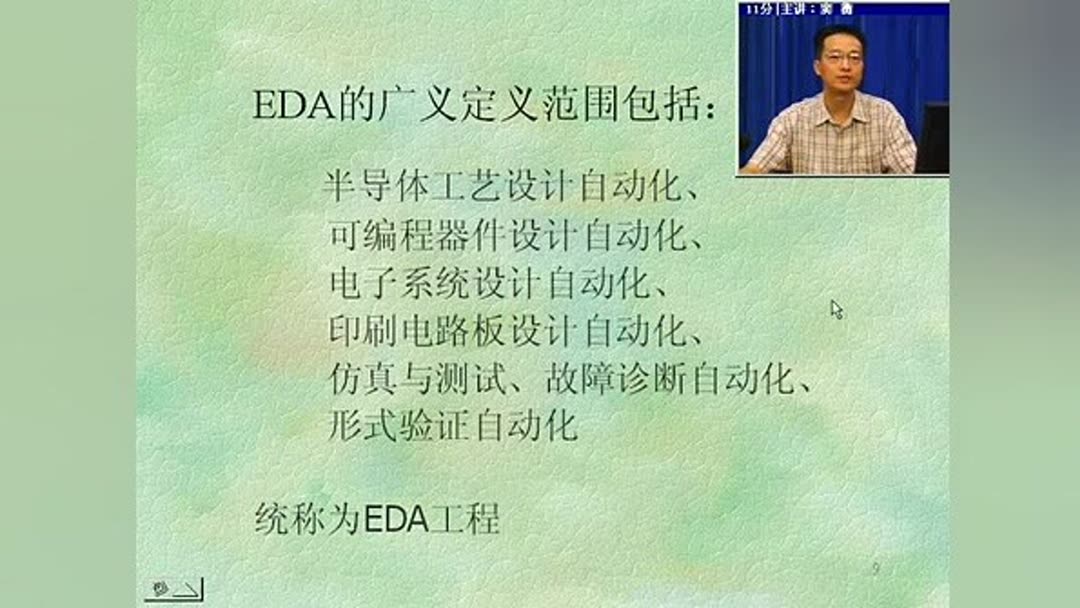 11分|主讲：窦 衡
EDA的广义定义范围包括：
半导体工艺设计自动化、
可编程器件设计自动化、
电子系统设计自动化、
印刷电路板设计自动化、
仿真与测试、故障诊断自动化、
形式验证自动化
统称为EDA工程
9